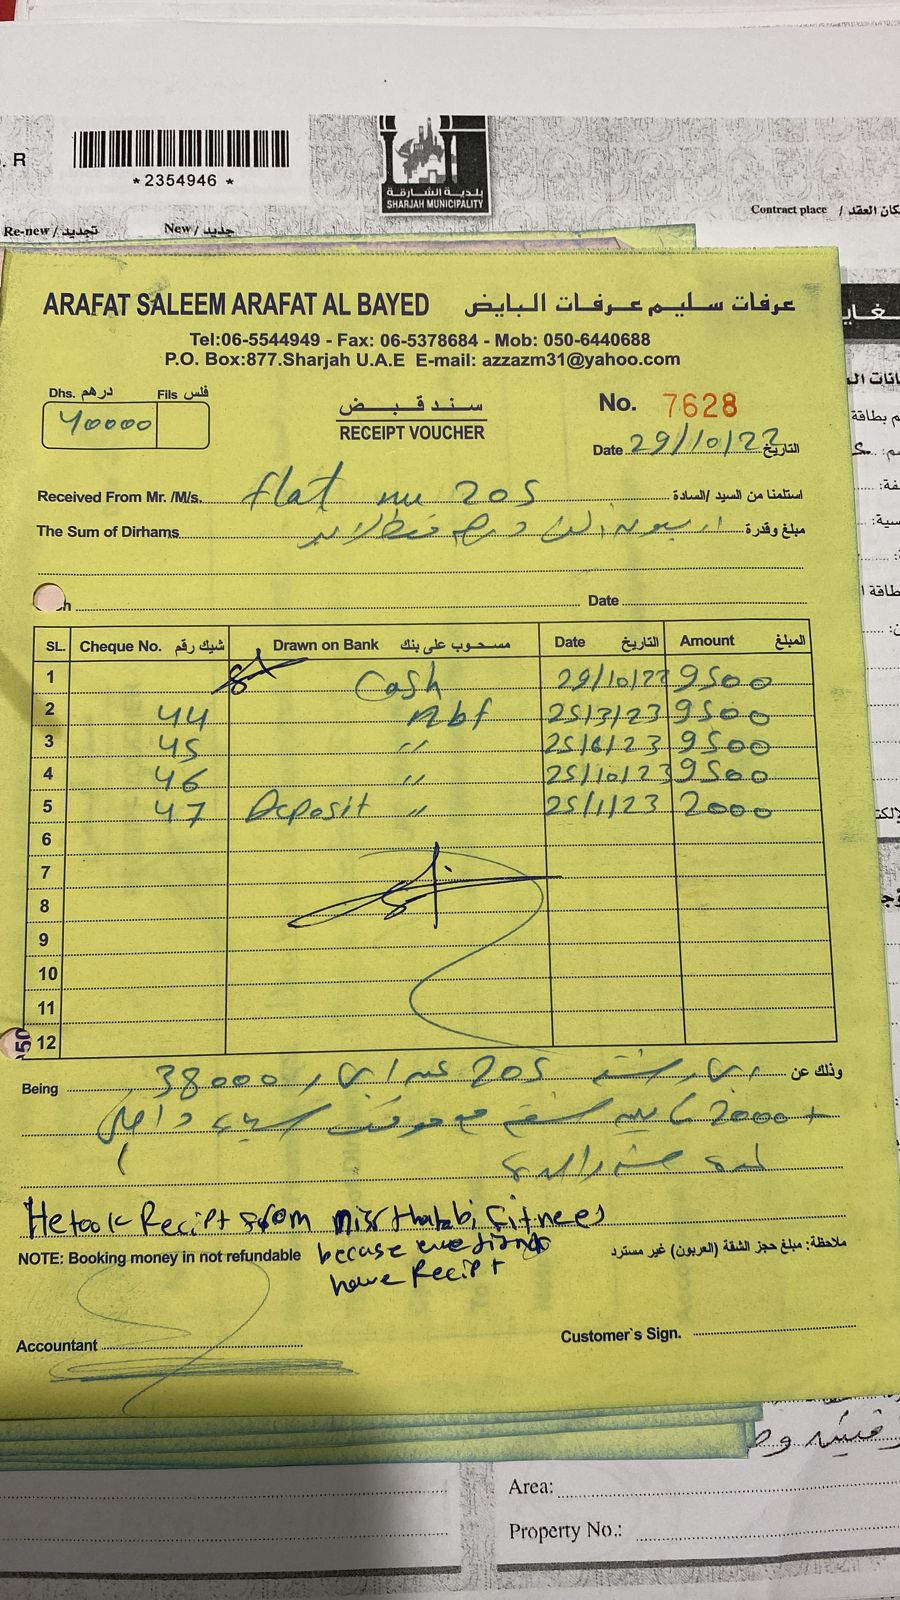 . R
*2354946 *
بلدية الشارقة
SHARJAH MUNICIPALITY
Contract place / مكان العقد
Re-new / تجديد New / جديد
ARAFAT SALEEM ARAFAT AL BAYED عرفات سليم عرفات البايض
Tel:06-5544949 - Fax: 06-5378684 - Mob: 050-6440688
P.O. Box:877.Sharjah U.A.E E-mail: azzazm31@yahoo.com
Dhs. درهم Fils فلس
40000
سند قبض
RECEIPT VOUCHER
No. 7628
Date 29/10/22 التاريخ
Received From Mr. /M/s. flat nu 205 استلمنا من السيد /السادة
The Sum of Dirhams اربعون الف درهم فقط لا غير مبلغ وقدرة
h Date
SL. Cheque No. شيك رقم Drawn on Bank مسحوب على بنك Date التاريخ Amount المبلغ
1 Cash 29/10/22 9500
2 44 nbf 25/3/23 9500
3 45 〃 25/6/23 9500
4 46 〃 25/10/23 9500
5 47 Deposit 〃 25/1/23 2000
6
7
8
9
10
11
12
Being 205 38000 وذلك عن
+ 2000
He took Recipt from miss thatabi fitnees
NOTE: Booking money in not refundable ملاحظة: مبلغ حجز الشقة (العربون) غير مسترد
becase
have Recipt
Accountant
Customer`s Sign.
Area:
Property No.: